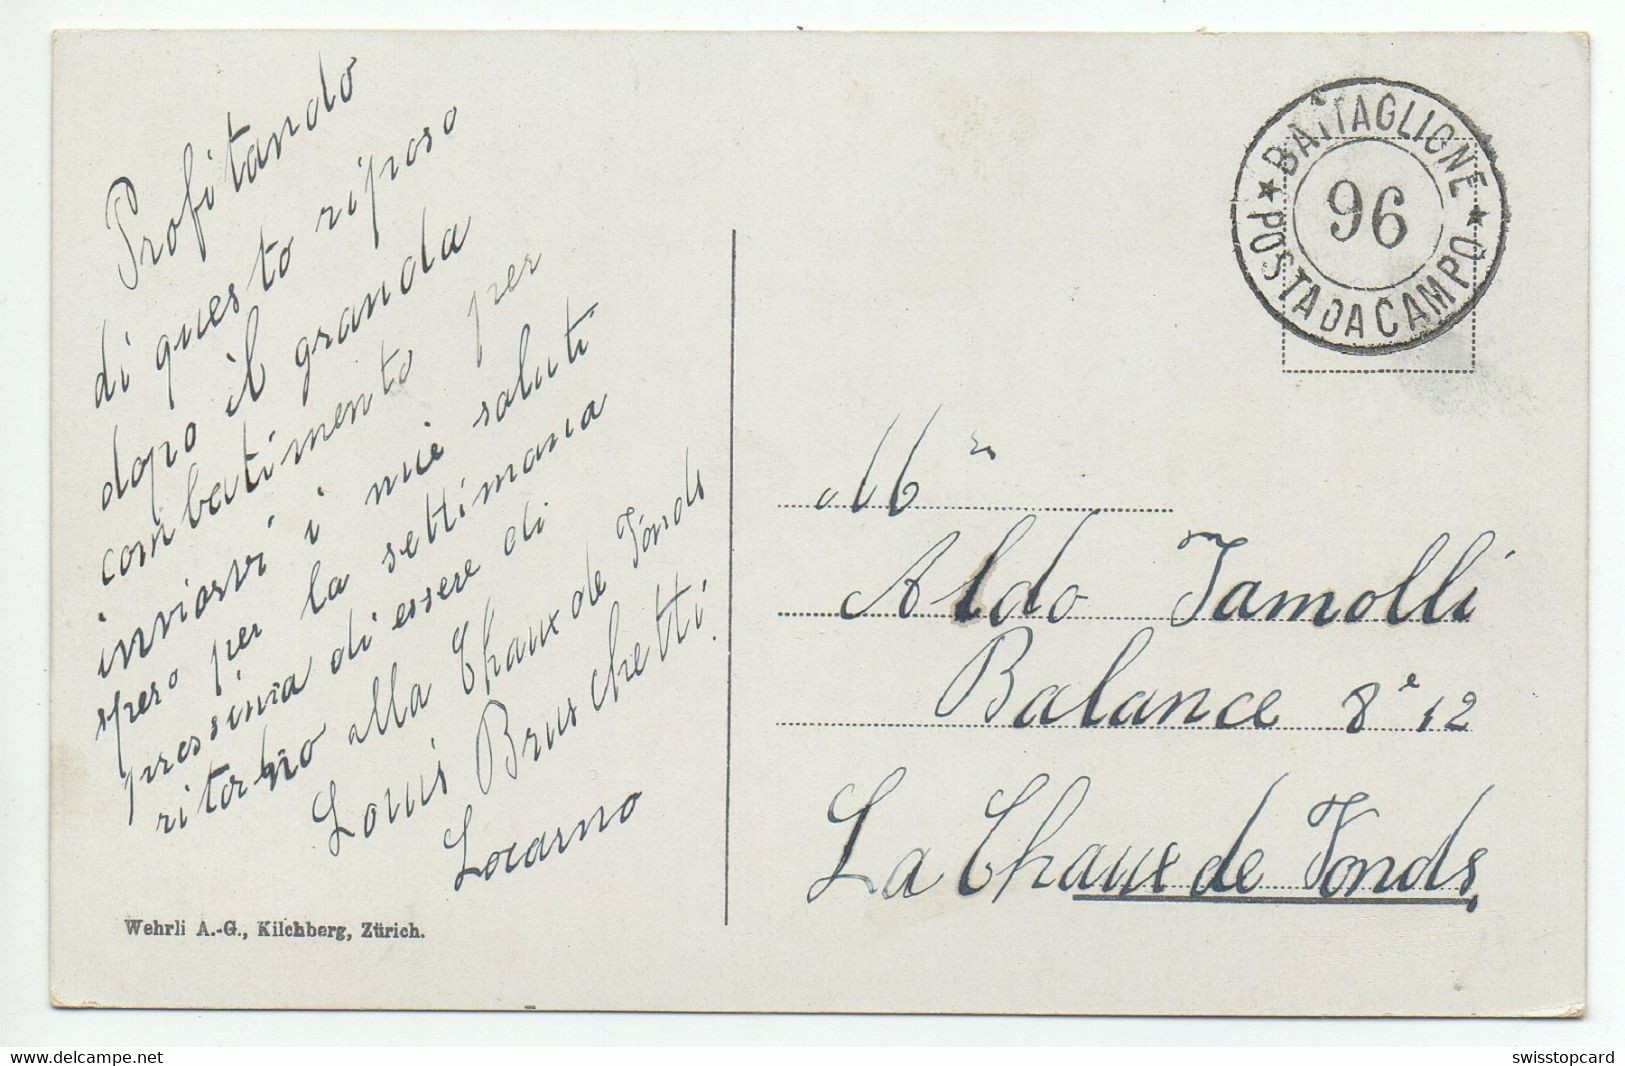 Profitando
di questo riposo
dopo il granda
combatimento per
inviarvi i miei saluti
spero per la settimana
prossima di essere di
ritorno alla Chaux de Fonds
Louis Bruschetti
Locarno
Wehrli A.-G., Kilchberg, Zürich.
★ BATTAGLIONE ★
96
POSTA DA CAMPO
Mr
Aldo Jamolli
Balance 8e 12
La Chaux de Fonds,
www.delcampe.net
swisstopcard